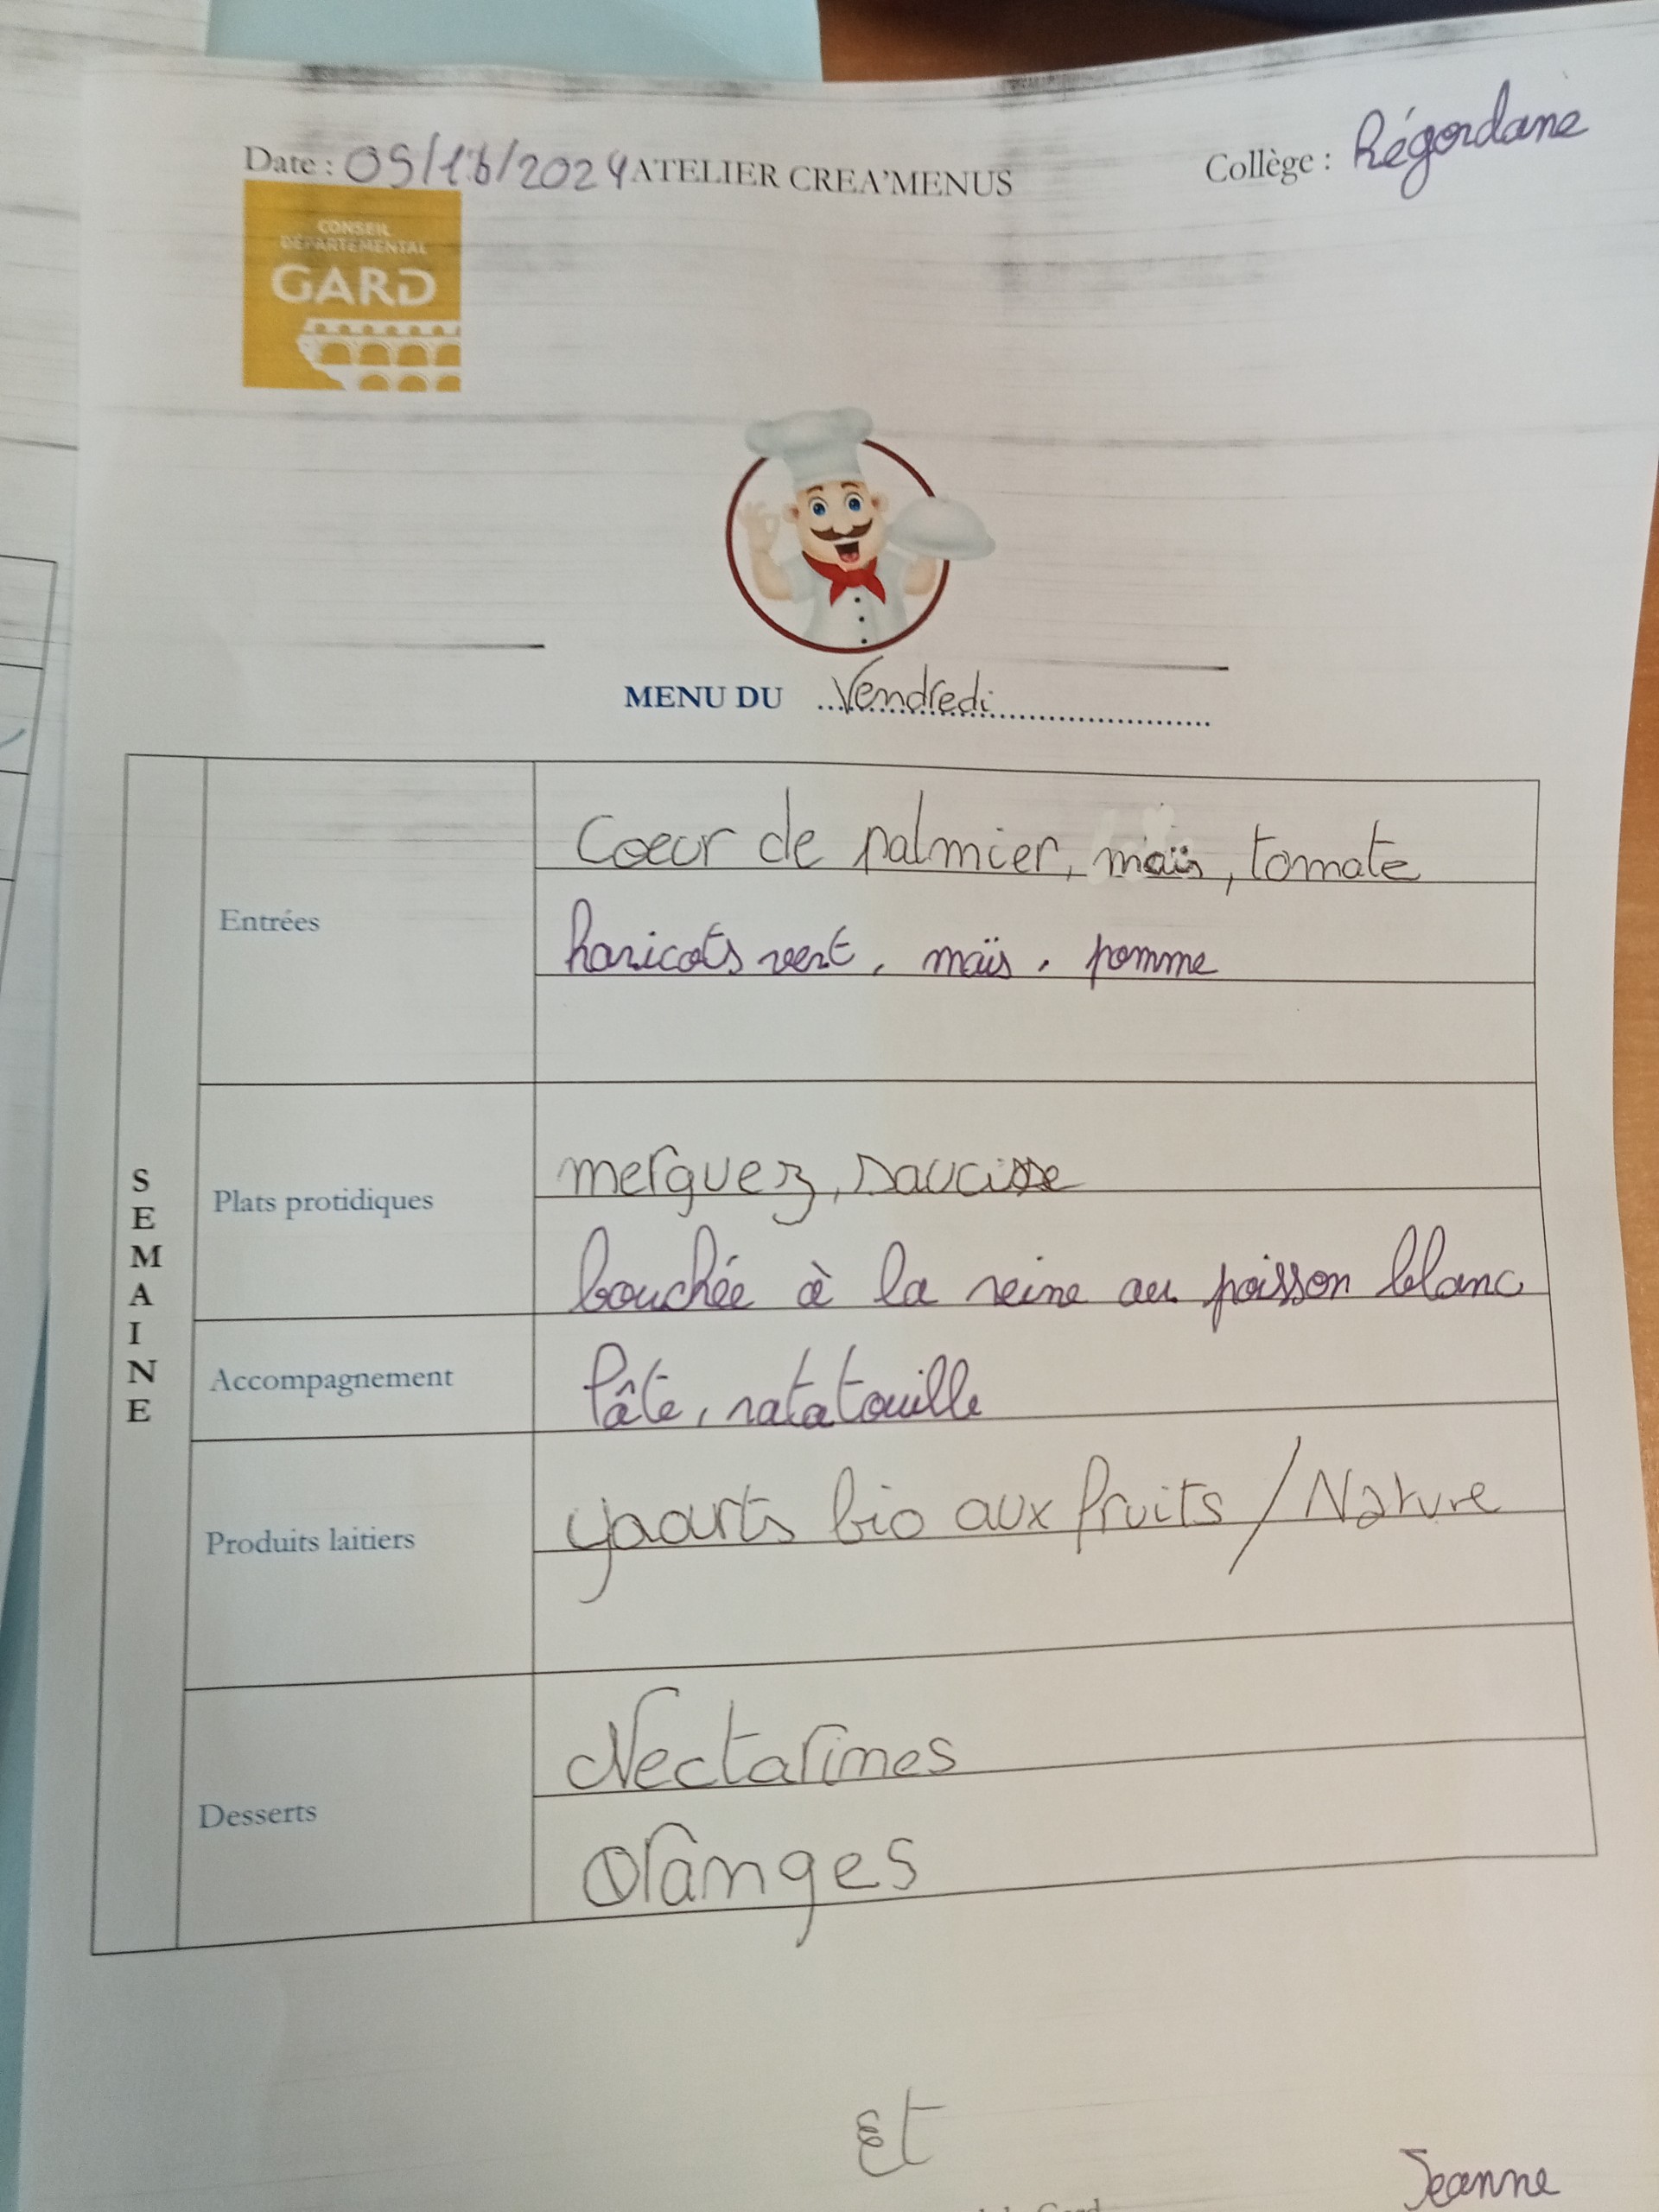 Date : 05/16/2024 ATELIER CREA'MENUS
Collège : Régordane
CONSEIL
DÉPARTEMENTAL
GARD
MENU DU Vendredi
SEMAINE
Entrées
Coeur de palmier, maïs, tomate
haricots vert, maïs, pomme
Plats protidiques
merguez, saucisse
bouchée à la reine au poisson blanc
Accompagnement
Pâte, ratatouille
Produits laitiers
yaourts bio aux fruits / Nature
Desserts
Nectarines
Oranges
Et
Jeanne
Gard